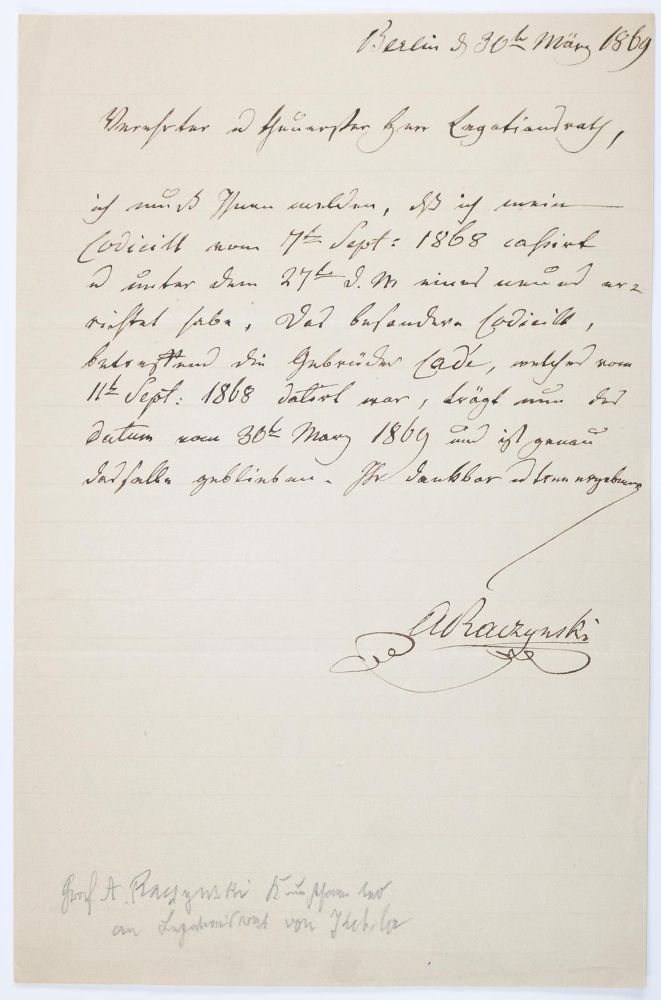 Berlin d 30th März 1869
Verehrter u theuerster Herr Legationsrath,
ich muß Ihnen melden, dß ich mein
Codicill vom 7th Sept: 1868 cassirt
u unter dem 27th d. M eines neues er=
richtet habe. Das besondere Codicill,
betreffend die Gebrüder Cadé, welches vom
11th Sept: 1868 datirt war, trägt nun das
Datum vom 30th Marz 1869 und ist genau
dasselbe geblieben. Ihr dankbar u treu ergebener
ARaczynski
Graf A. Raczynski
an Legationsrat von